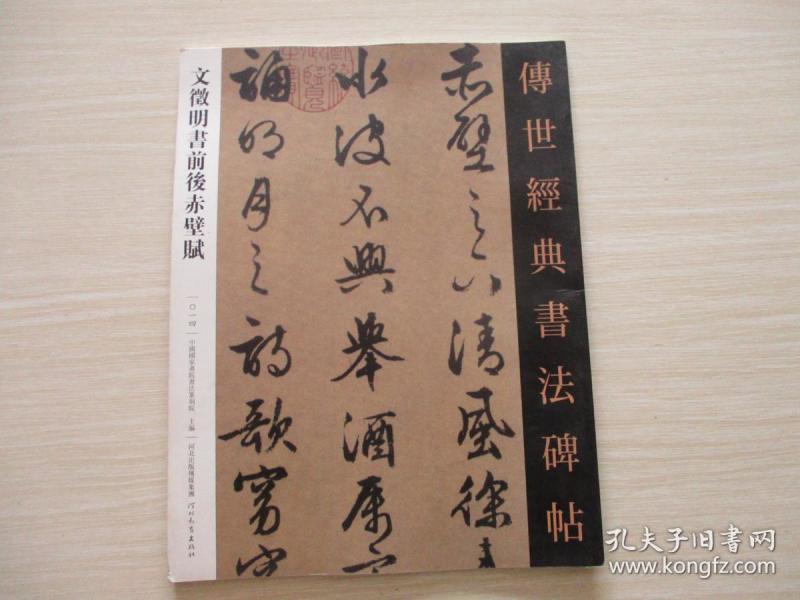 傳世經典書法碑帖
赤壁之下清風徐
水波不興舉酒屬客
誦明月之詩歌窈窕
文徵明書前後赤壁賦
〇一四
中國國家畫院書法篆刻院 主編
河北出版傳媒集團
河北教育出版社
孔夫子旧书网
www.kongfz.com